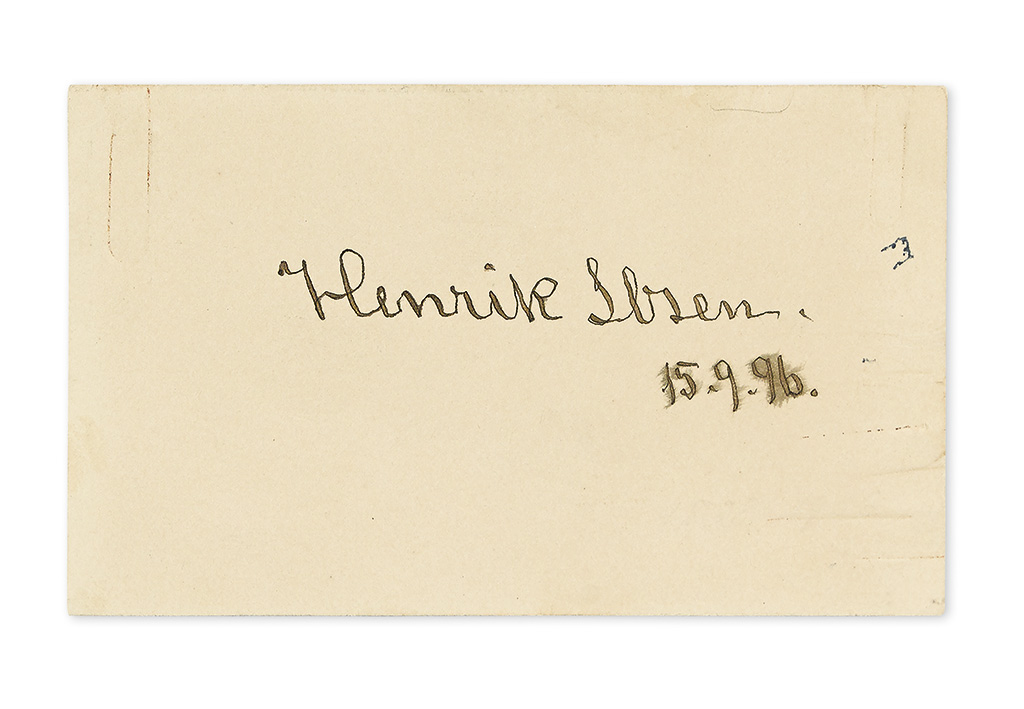 Henrik Ibsen.
15.9.96.